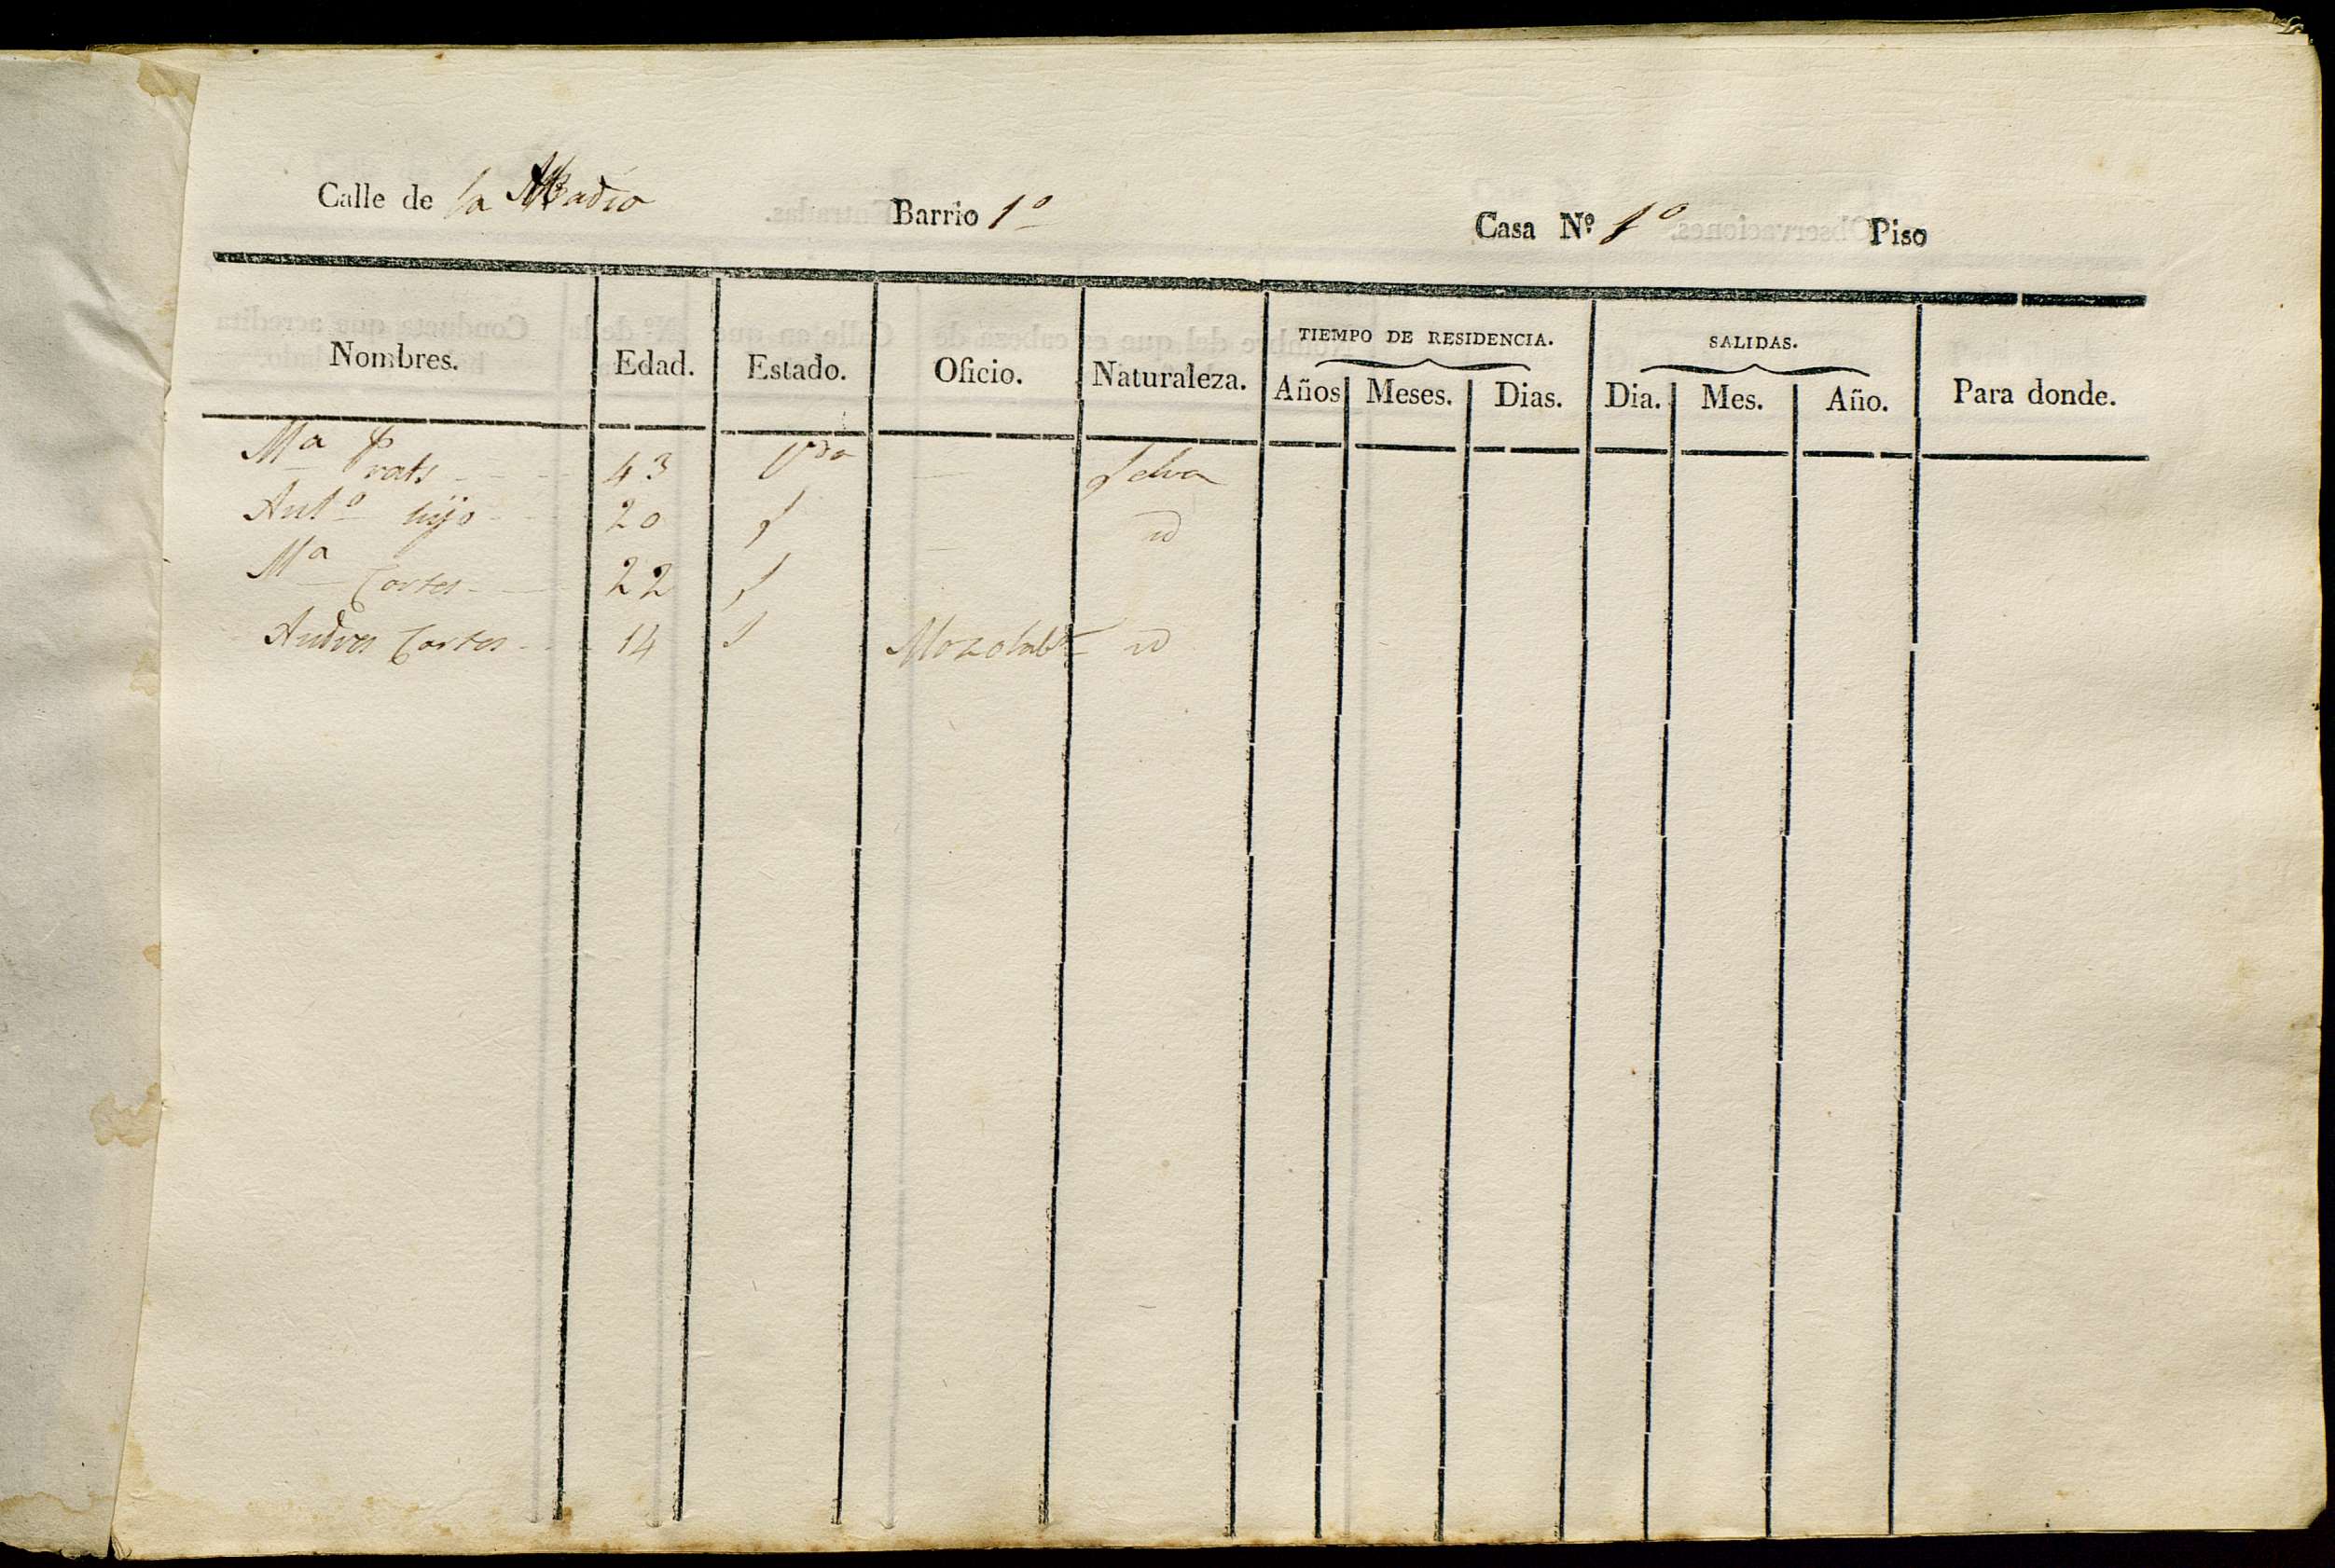 Calle de la Abadia Barrio 1º Casa Nº 1º Piso
TIEMPO DE RESIDENCIA. SALIDAS.
Nombres. Edad. Estado. Oficio. Naturaleza. Años Meses. Dias. Dia. Mes. Año. Para donde.
Mª Prats 43 Vda — Selva
Antº hijo 20 S — id
Mª Cortes 22 S
Andres Cortes 14 S id